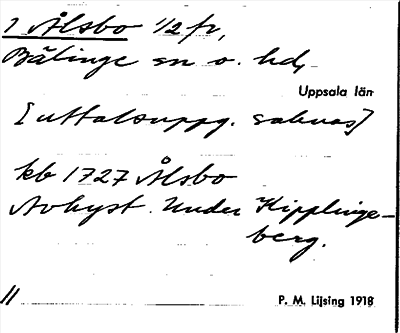 1 Ålsbo 1/2 fr,
Bälinge sn o. hd,
Uppsala län
[uttalsuppg. saknas]
kb 1727 Ålsbo
Avhyst. Under Kipplinge-
berg.
P. M. Lijsing 1918